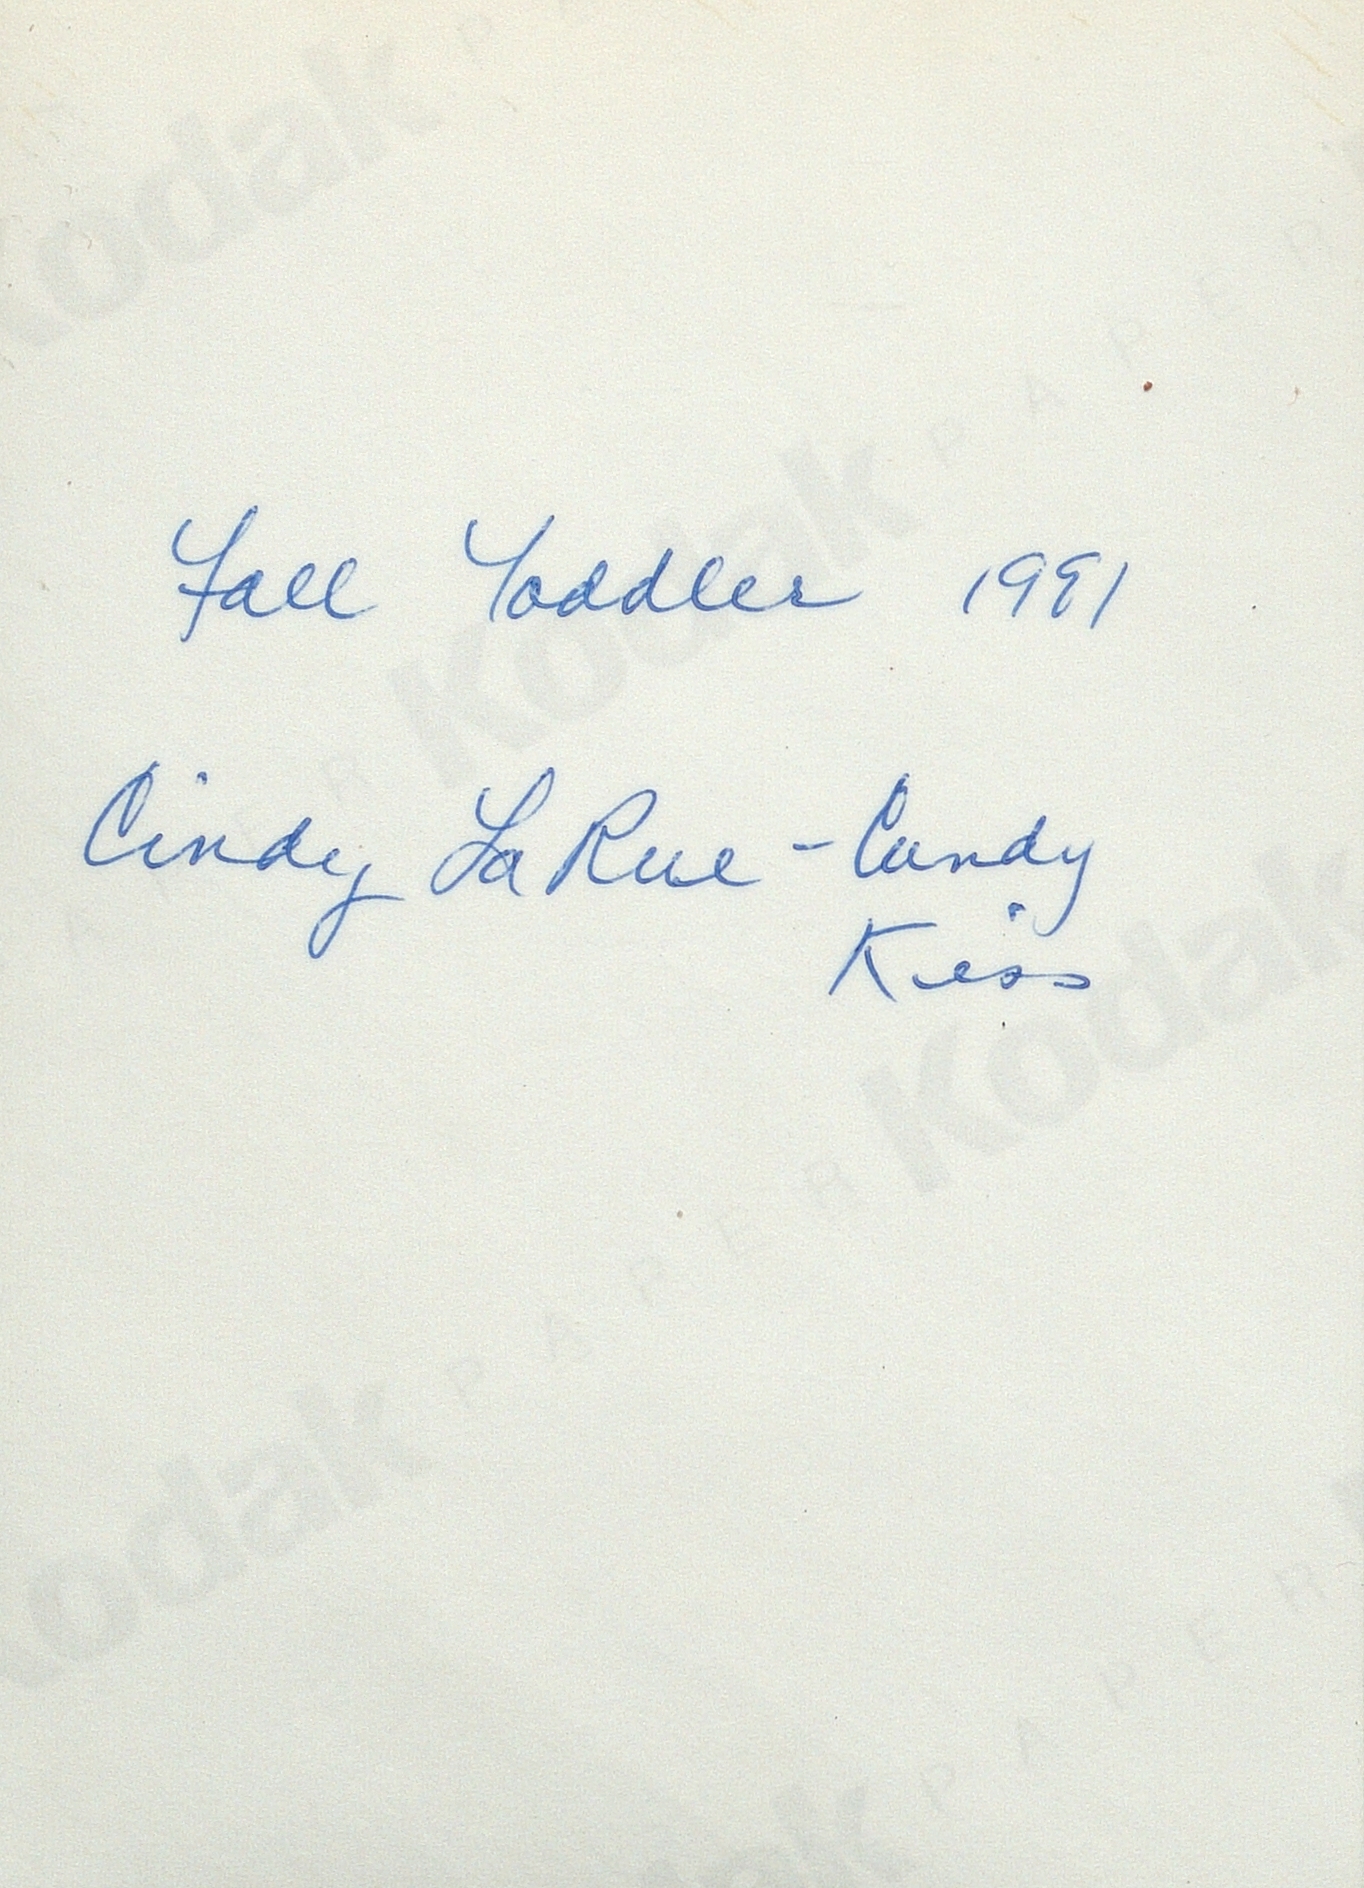 Kodak
PAPER
Fall Toddler 1991
Kodak
PAPER
Cindy LaRue - Candy
Kiss
Kodak
PAPER
Kodak
PAPER
Kodak
PAPER